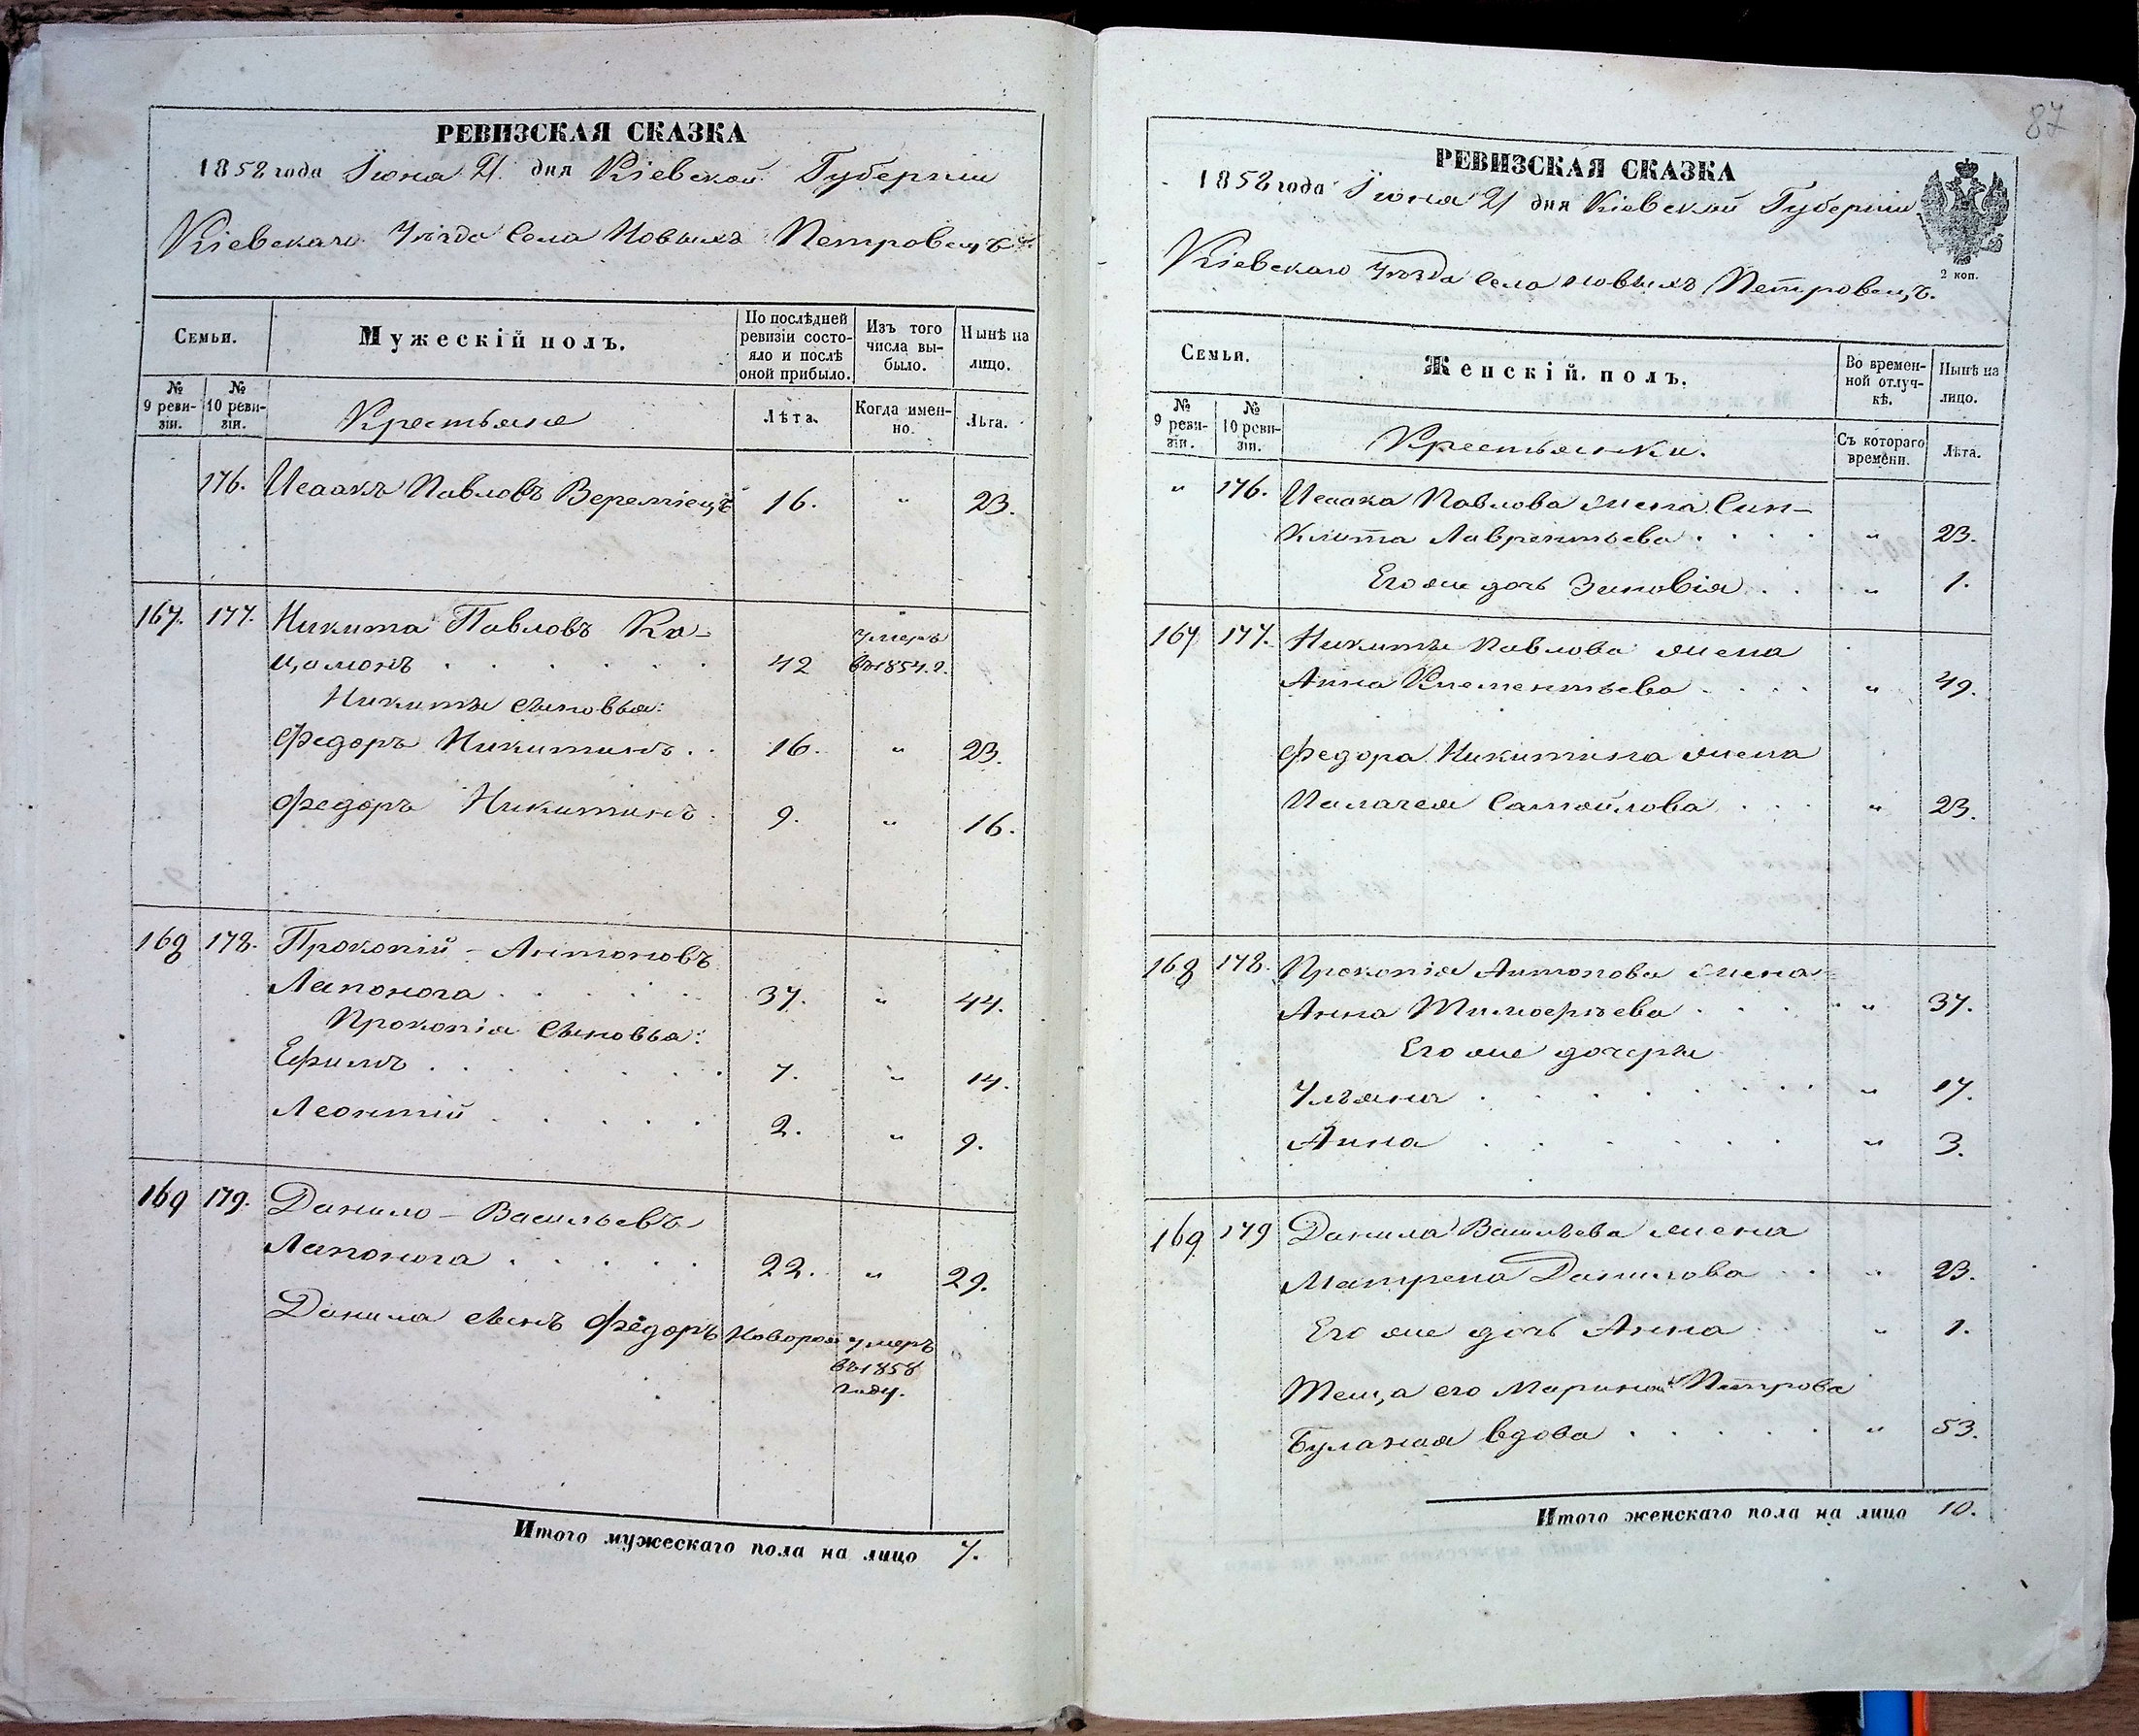 РЕВИЗСКАЯ СКАЗКА
1858 года Іюня 21 дня Кіевской Губерніи
Кіевскаго Уѣзда Села Новыхъ Петровецъ.
Семьи.
Мужескій полъ.
По послѣдней ревизіи состояло и послѣ оной прибыло.
Изъ того числа выбыло.
Нынѣ на лицо.
№ 9 ревизіи.
№ 10 ревизіи.
Крестьяне
Лѣта.
Когда именно.
Лѣта.
176. Исаакъ Павловъ Веремієцъ 16. " 23.
167. 177. Никита Павловъ Ка-
цамонъ . . . . . . 42 умеръ въ 1854. г.
Никиты сыновья:
Федоръ Никитинъ . . 16. " 23.
Федоръ Никитинъ . 9. " 16.
168 178. Прокопій - Антоновъ
Лапонога . . . . . 37. " 44.
Прокопія сыновья:
Ефимъ . . . . . . . 7. " 14.
Леонтій . . . . . 2. " 9.
169 179. Данило - Васильевъ
Лапонога . . . . . 22. " 29.
Данила сынъ Фёдоръ Новорож умеръ
въ 1858
году.
Итого мужескаго пола на лицо 7.
87
РЕВИЗСКАЯ СКАЗКА
1858 года Іюня 21 дня Кіевской Губерніи
2 коп.
Кіевскаго Уѣзда Села Новыхъ Петровецъ.
Семьи.
Женскій полъ.
Во временной отлучкѣ.
Нынѣ на лицо.
№ 9 ревизіи.
№ 10 ревизіи.
Крестьянки.
Съ котораго времени.
Лѣта.
" 176. Исаака Павлова жена Син-
клита Лаврентьева . . . . " 23.
Его же дочь Зиновія . . . " 1.
167 177. Никиты Павлова жена
Анна Клементьева . . . . " 49.
Федора Никитина жена
Палагея Самойлова . . . " 23.
168 178. Прокопія Антонова жена
Анна Тимоферьева . . . . " 37.
Его же дочери
Ульяна . . . . . . . " 17.
Анна . . . . . . " 3.
169 179 Данила Васильева жена
Матрена Данилова . . " 23.
Его же дочь Анна . . " 1.
Теща его Марина Петрова
Буланая вдова . . . . . " 53.
Итого женскаго пола на лицо 10.